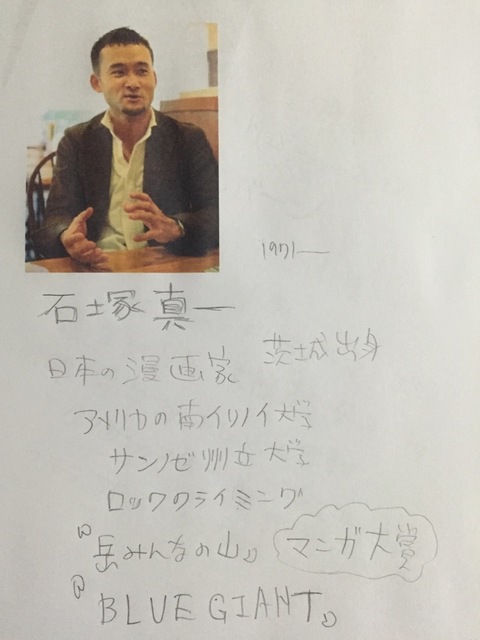 1971—
石塚真一
日本の漫画家 茨城出身
アメリカの南イリノイ大学
サンノゼ州立大学
ロッククライミング
『岳みんなの山』 マンガ大賞
『BLUE GIANT』